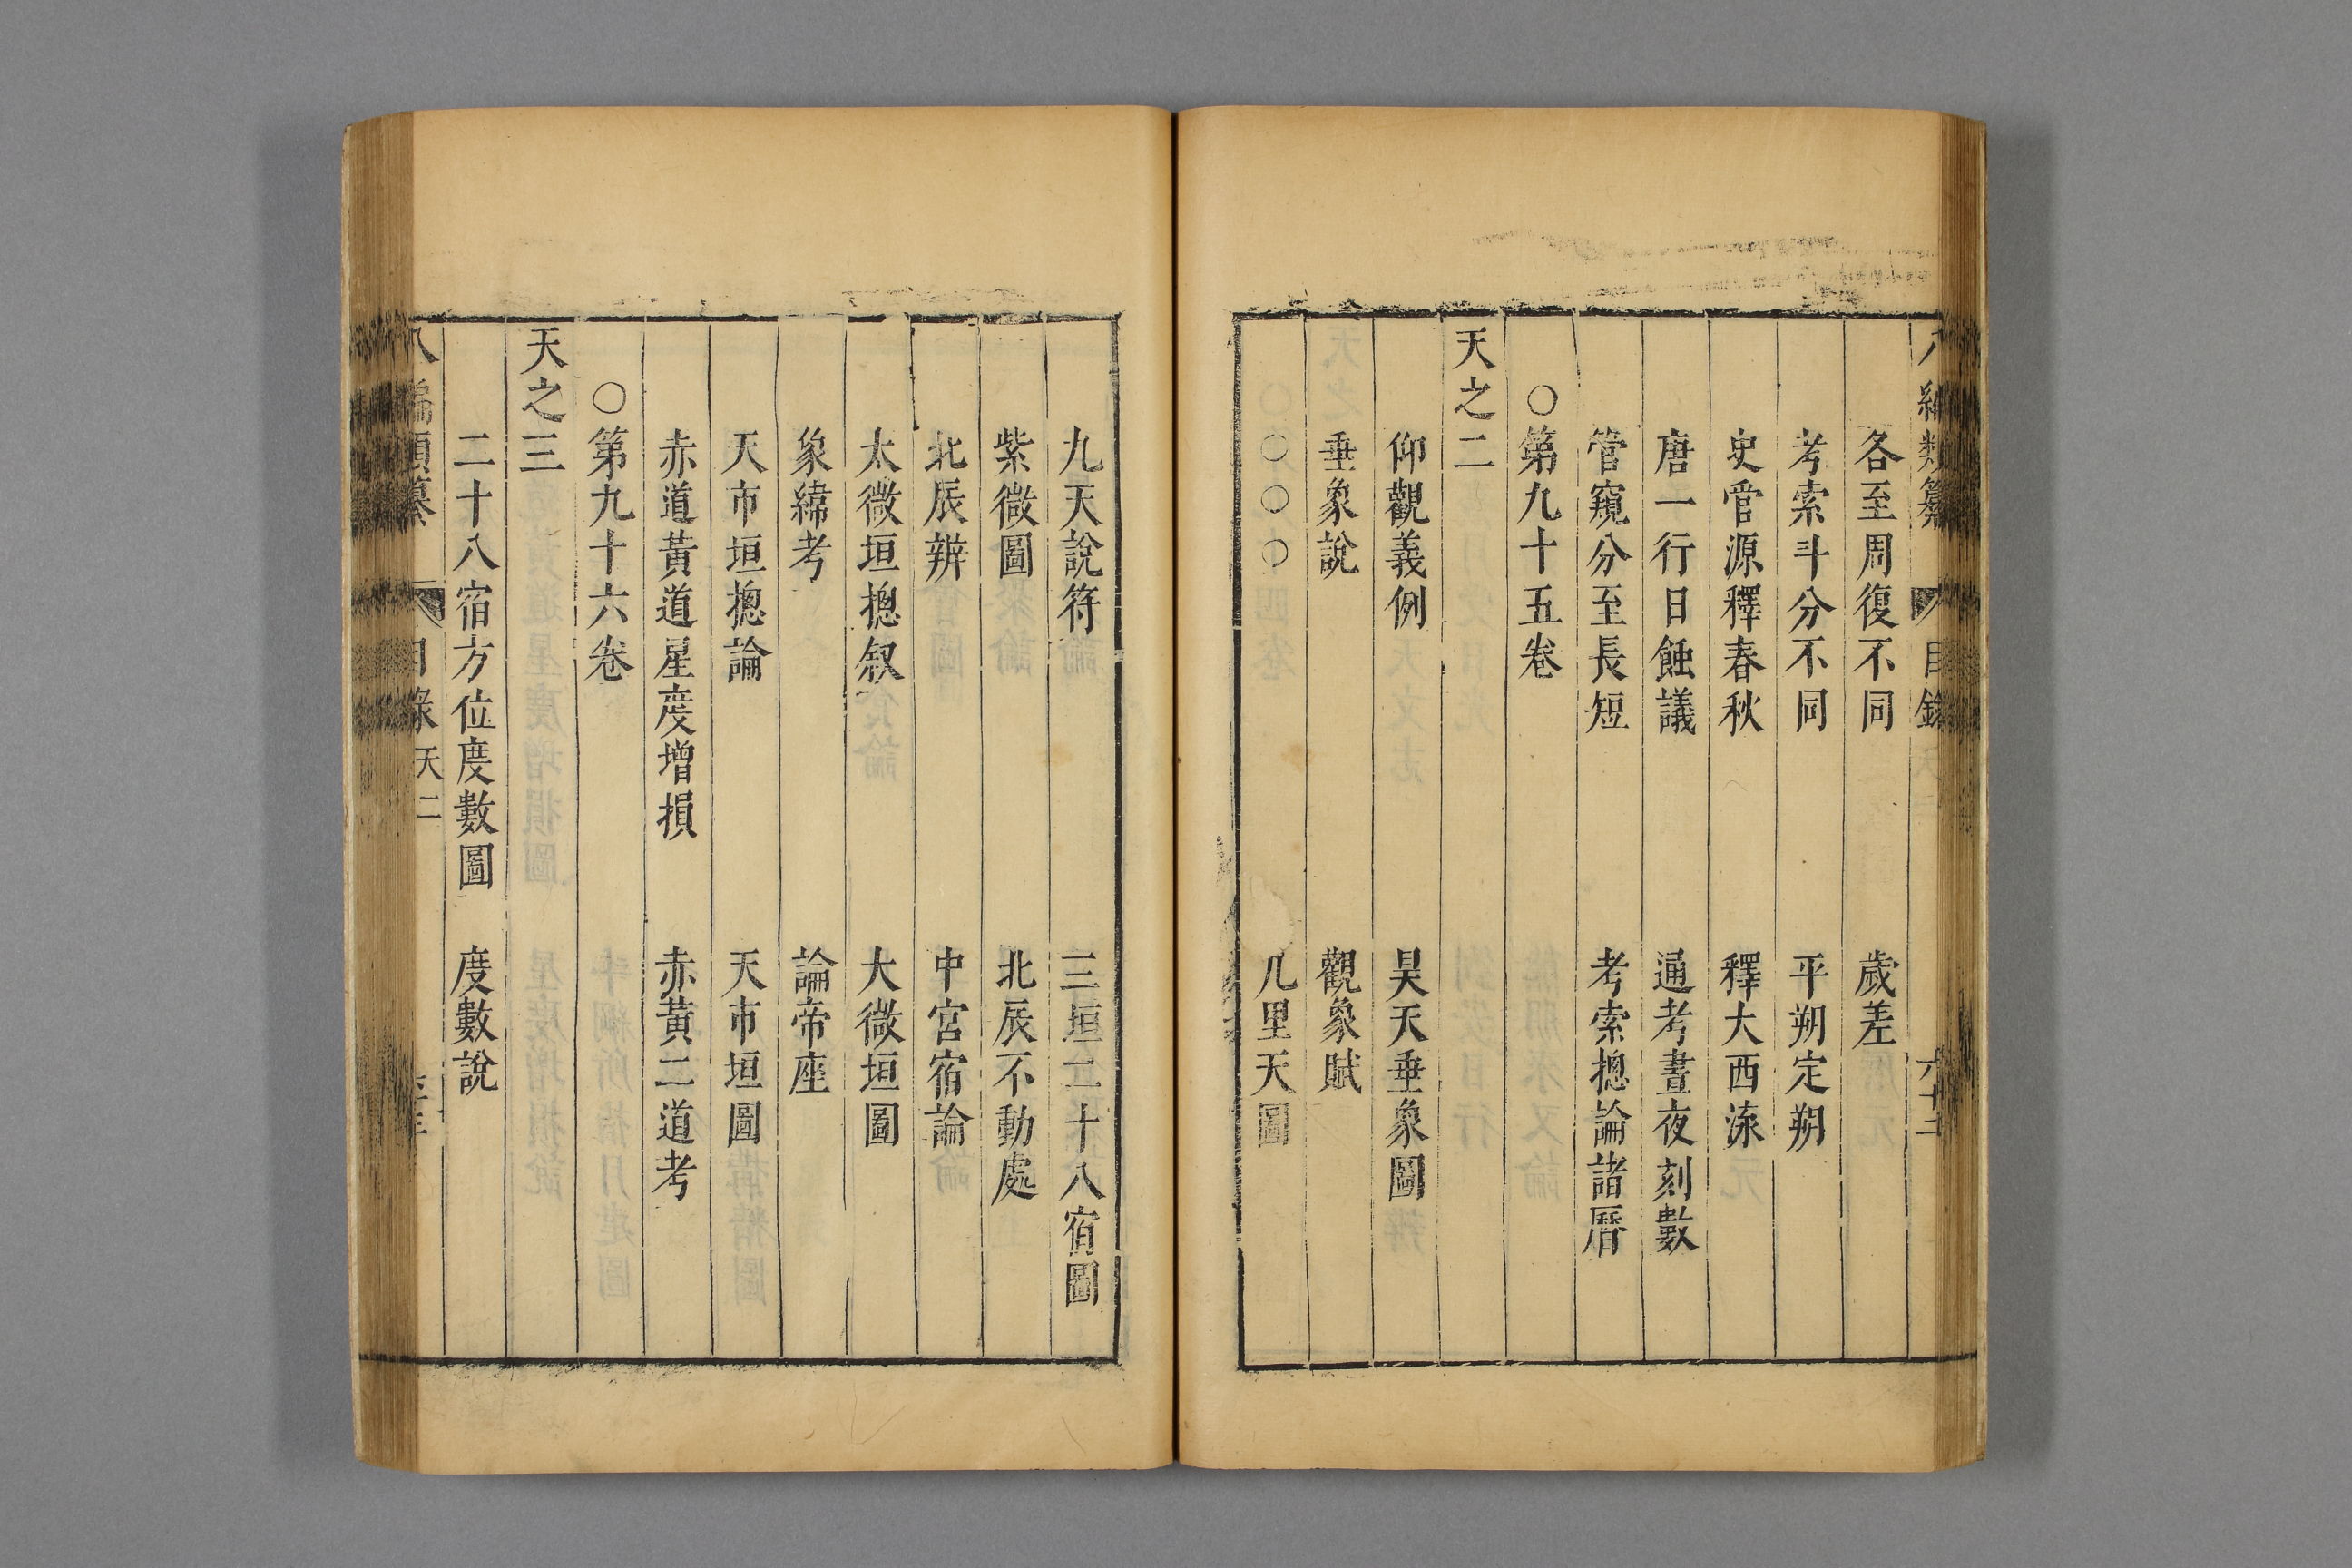 八編類纂 目錄 六十三
各至周復不同 歲差
考索斗分不同 平朔定朔
史管源釋春秋 釋大西涂
唐一行日蝕議 通考晝夜刻數
管窺分至長短 考索摠論諸曆
○第九十五卷
天之二
仰觀義例 昊天垂象圖
垂象說 觀象賦
○○○ 几里天圖
九天說符 三垣二十八宿圖
紫微圖 北辰不動處
北辰辨 中宮宿論
太微垣摠叙 大微垣圖
象緯考 論帝座
天市垣摠論 天市垣圖
赤道黃道星度增損 赤黃二道考
○第九十六卷
天之三
二十八宿方位度數圖 度數說
八編類纂 目錄 天二